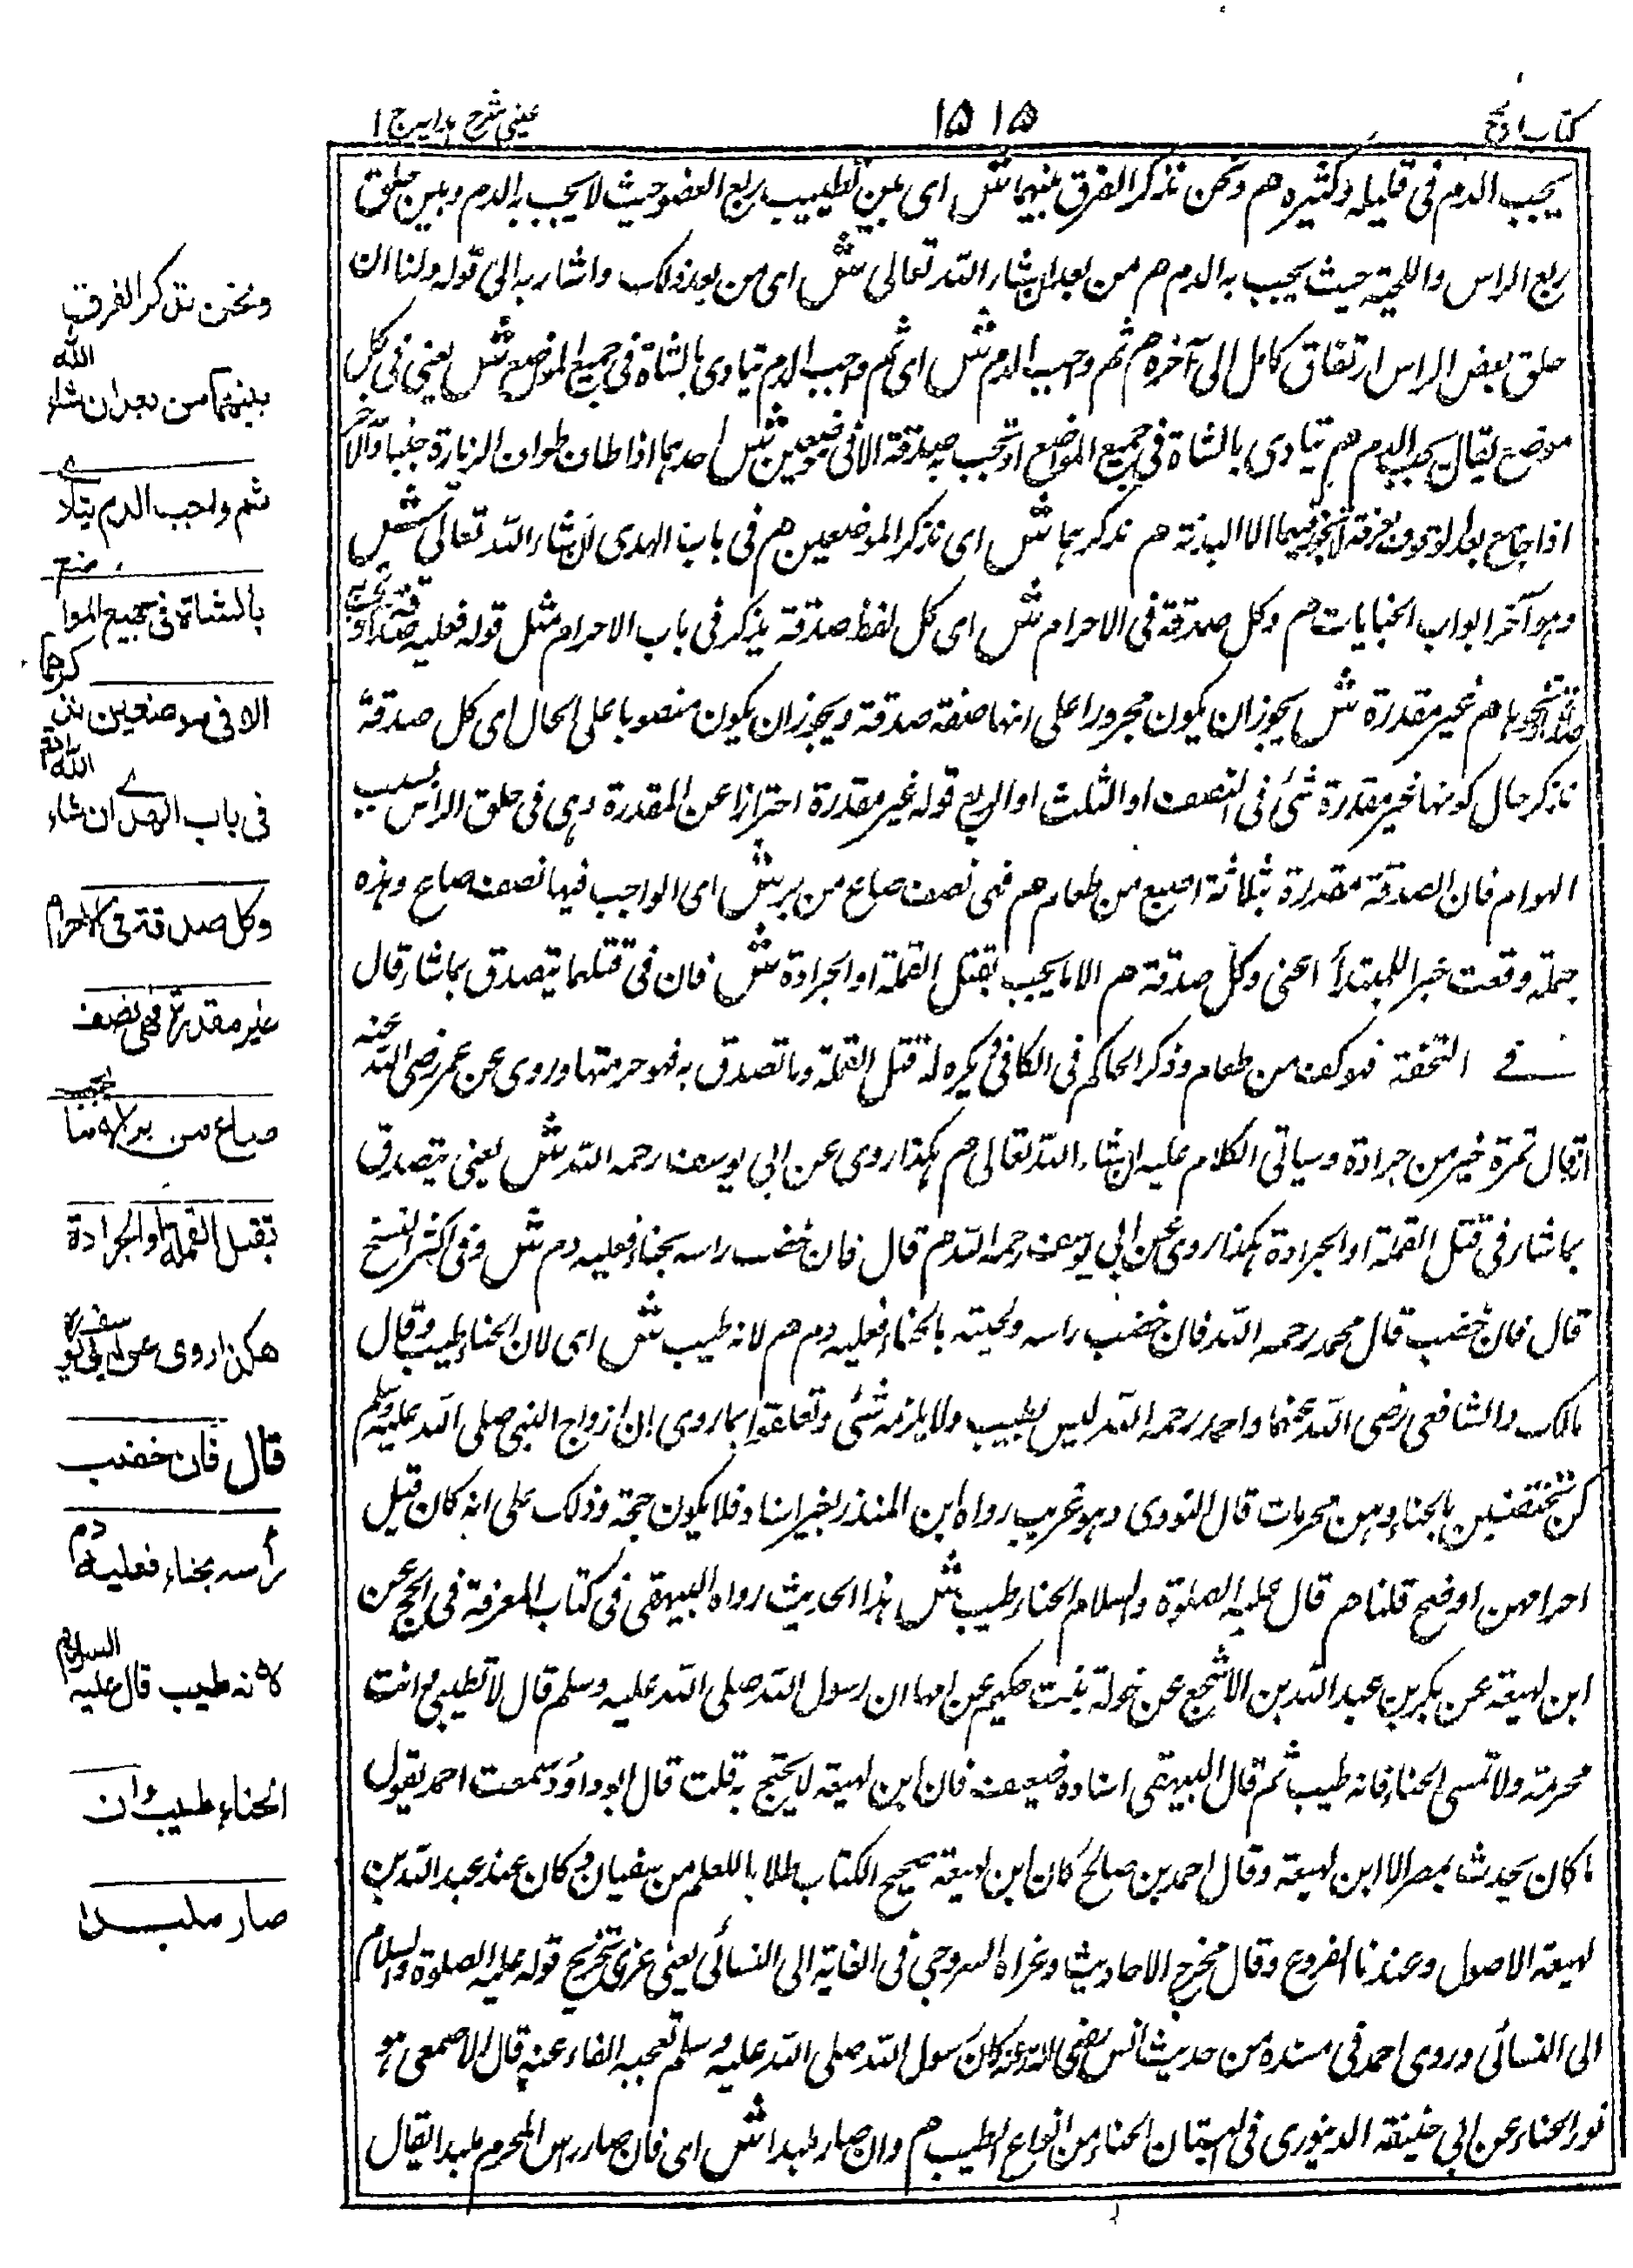 كتاب الحج
١٥١٥
عینی شرح ہدایہ ج ١
يجب الدم فى قليله وكثيره هم ونحن نذكر الفرق بينهما ش اى بين تطييب ربع العضو حيث لا يجب به الدم وبين حلق
ربع الراس واللحية حيث يجب به الدم هم من بعد ان شاء الله تعالى ش اى من بعد ذلك واشار به الى قوله ولنا ان
حلق بعض الراس ارتفاق كامل الى آخره هم ثم واجب الدم ش اى ثم واجب الدم يتادى بالشاة فى جميع المواضع ش يعنى فى كل
موضع يقال يجب الدم هم يتادى بالشاة فى جميع المواضع او تجب به صدقة الا فى موضعين ش احدهما اذا طاف طواف الزيارة جنبا والآخر
اذا جامع بعد الوقوف بعرفة لا يجوز فيهما الا البدنة هم نذكرهما ش اى نذكر الموضعين هم فى باب الهدى ان شاء الله تعالى ش
وهو آخر ابواب الجنايات هم وكل صدقة فى الاحرام ش اى كل لفظ صدقة يذكر فى باب الاحرام مثل قوله فعليه صدقة او
هم غير مقدرة ش يجوز ان يكون مجرورا على انها صفة صدقة ويجوز ان يكون منصوبا على الحال اى كل صدقة
تذكر حال كونها غير مقدرة شئ فى النصف او الثلث او الربع قوله غير مقدرة احترازا عن المقدرة وهى فى حلق الراس بسبب
الهوام فان الصدقة مقدرة بثلاثة اصيع من طعام هم فهى نصف صاع من بر ش اى الواجب فيها نصف صاع وهذه
جملة وقعت خبرا للمبتدأ اعنى وكل صدقة هم الا ما يجب بقتل القملة او الجرادة ش فان فى قتلهما يتصدق بما شاء قال
فے التحفة فهو كف من طعام وذكر الحاكم فى الكافى يكره له قتل القملة وما تصدق به فهو حرمتها وروى عن عمر رضى الله عنه
انه قال تمرة خير من جرادة وسياتى الكلام عليه ان شاء الله تعالى هم هكذا روى عن ابى يوسف رحمه الله ش يعنى يتصدق
بما شاء فى قتل القملة او الجرادة هكذا روى عن ابى يوسف رحمه الله هم قال فان خضب راسه بحناء فعليه دم ش وفى اكثر النسخ
قال فان خضب قال محمد رحمه الله فان خضب راسه ولحيته بالحناء فعليه دم هم لانه طيب ش اى لان الحناء طيب وقال
مالك والشافعى رضى الله عنهما واحمد رحمه الله ليس بطيب ولا يلزمه شئ وتعلقوا بما روى ان ازواج النبى صلى الله عليه وسلم
كن يختضبن بالحناء وهن محرمات قال النووى وهو غريب رواه ابن المنذر بغير اسناد فلا يكون حجة وذلك على انه كان قبل
احرامهن او فسخ قلنا هم قال عليه الصلوة والسلام الحناء طيب ش هذا الحديث رواه البيهقى فى كتاب المعرفة فى الحج عن
ابن لهيعة عن بكير بن عبد الله بن الاشج عن خولة بنت حكيم عن امها ان رسول الله صلى الله عليه وسلم قال لا تطيبى وانت
محرمة ولا تمسى الحناء فانه طيب ثم قال البيهقى اسناده ضعيف فان ابن لهيعة لا يحتج به قلت قال ابو داؤد سمعت احمد يقول
ما كان يحدث بمصر الا ابن لهيعة وقال احمد بن صالح كان ابن لهيعة صحيح الكتاب طلابا للعلم من سفيان وكان عند عبد الله بن
لهيعة الاصول وعندنا الفروع وقال مخرج الاحاديث وعزاه السروجى فى الغاية الى النسائى يعنى عزى تخريج قوله عليه الصلوة والسلام
الى النسائى وروى احمد فى مسنده من حديث انس رضى الله عنه كان رسول الله صلى الله عليه وسلم تعجبه الفاغية قال الاصمعى هو
نور الحناء عن ابى حنيفة الدينورى فى ان الحناء من انواع الطيب هم وان صار ملبدا ش اى فان صار راس المحرم ملبدا يقال
ونحن نذكر الفرق
بينهما من بعد ان شاء الله
ثم واجب الدم يتادے
بالشاة فى جميع المواضع
الا فى موضعين نذكرهما
فى باب الهدے ان شاء الله
وكل صدقة فى الاحرام
غير مقدرة فهى نصف
صاع من بر الا ما يجب
بقتل القملة او الجرادة
هكذا روى عن ابى يوسف
قال فان خضب
رأسه بحناء فعليه دم
لانه طيب قال عليه السلام
الحناء طيب وان
صار ملبدا